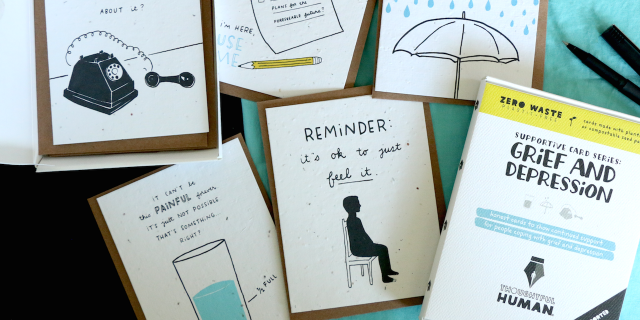 ABOUT it?
i'm HERE,
USE
ME
PLANS FOR the
FORESEEABLE future?
REMiNDER:
it's ok to just
feel it.
IT CAN'T BE
this PAINFUL forever.
IT'S JUST NOT POSSIBLE
THAT'S SOMETHING...
RIGHT?
½ FULL
ZERO WASTE
cards made with plant
SUPPORTIVE CARD SERIES:
GRiEF AND
DEPRESSION
honest cards to show continued support
for people coping with grief and depression
THOUGHTFUL
HUMAN